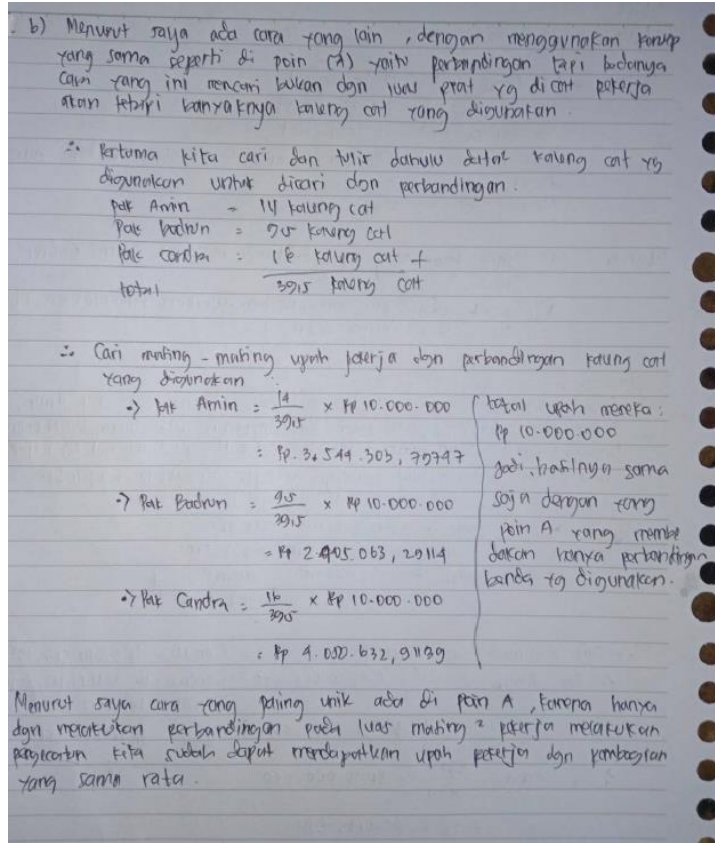 b) Menurut saya ada cara yang lain, dengan menggunakan konsep
yang sama seperti di poin (a) yaitu perbandingan tapi bedanya
cara yang ini mencari bukan dgn luas yg di cat pekerja
akan tetapi banyaknya kaleng cat yang digunakan.
∴ Pertama kita cari dan tulis dahulu kaleng cat yg
digunakan untuk dicari dgn perbandingan.
pak Amin = 14 kaleng cat
Pak badrun = 9,5 kaleng cat
Pak candra : 16 kaleng cat +
total 39,5 kaleng cat
∴ Cari masing-masing upah pekerja dgn perbandingan kaleng cat
yang digunakan
•> pak Amin = 14/39,5 × Rp 10.000.000
= Rp. 3.544.303,79747
•> Pak Badrun = 9,5/39,5 × Rp 10.000.000
= Rp 2.405.063,29114
•> Pak Candra = 16/39,5 × Rp 10.000.000
= Rp 4.050.632,91139
total upah mereka:
Rp 10.000.000
Jadi, hasilnya sama
saja dengan yang
poin A yang membe
dakan hanya perbandingan
benda yg digunakan.
Menurut saya cara yang paling unik ada di poin A, karena hanya
dgn melakukan perbandingan pada luas masing² pekerja melakukan
pengecatan kita sudah dapat mendapatkan upah pekerja dgn pembagian
yang sama rata.